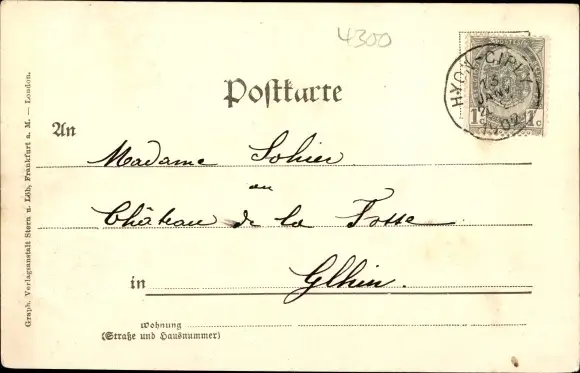 4300
HYON-CIPLY
13
JANV
1902
1c 1c
Postkarte
An
Madame Sohier
au
Château de la Fosse
in Glhin.
Wohnung
(Straße und Hausnummer)
Graph. Verlagsanstalt Stern u. Löb, Frankfurt a. M. — London.